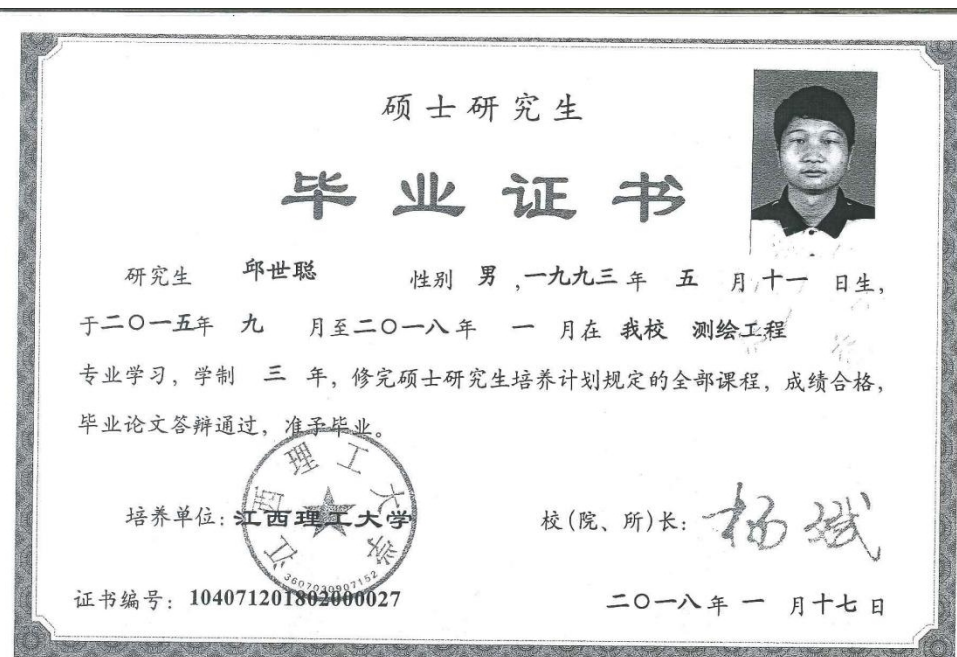 硕士研究生
毕业证书
研究生 邱世聪 性别 男 ,一九九三年 五 月十一 日生,
于二〇一五年 九 月至二〇一八年 一 月在 我校 测绘工程
专业学习，学制 三 年，修完硕士研究生培养计划规定的全部课程，成绩合格，
毕业论文答辩通过，准予毕业。
江西理工大学
3607030907152
培养单位：江西理工大学 校(院、所)长：杨斌
证书编号：104071201802000027 二〇一八年 一 月十七日